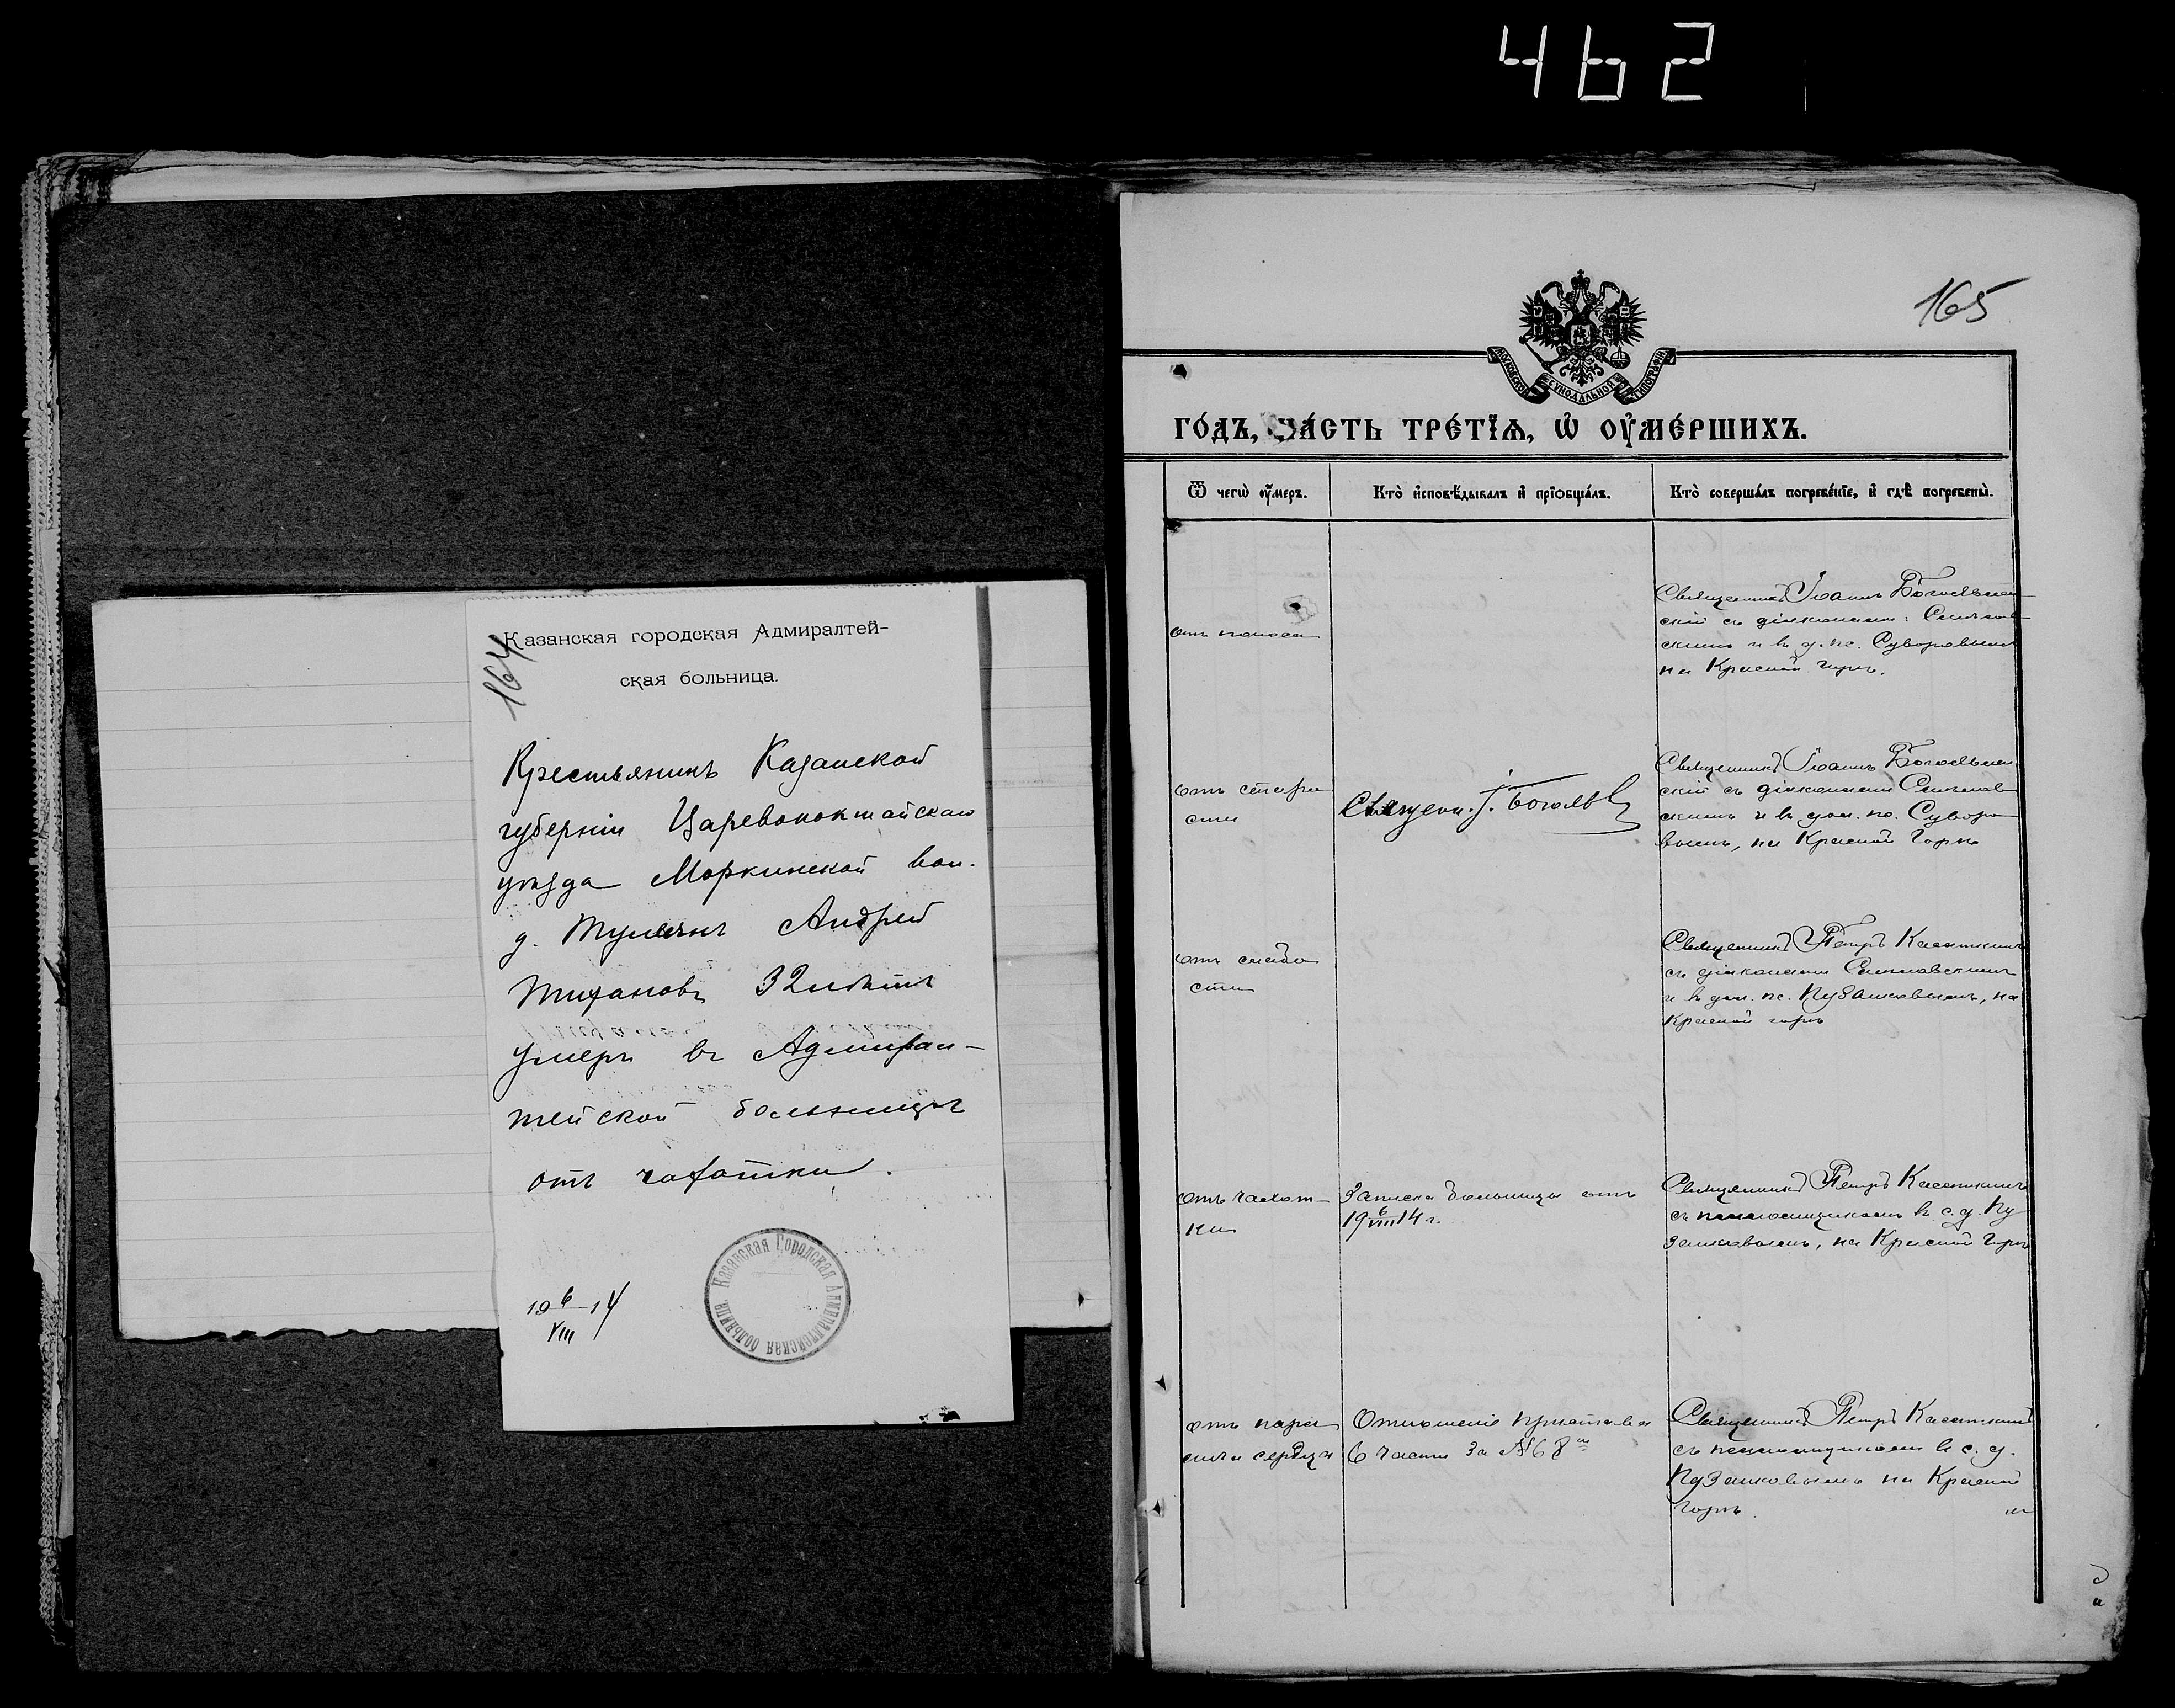 462
164
Казанская городская Адмиралтей-
ская больница.
Крестьянинъ Казанской
губерніи Царевококшайскаго
уѣзда Моркинской вол.
д. Андрей
Тихановъ 32 лѣтъ
умеръ въ Адмирал-
тейской больницѣ
отъ чахотки.
19 6/VIII 14
Казанская Городская Адмиралтейская больница
165
МОСКОВСКОЙ СУНОДАЛЬНОЙ ТИПОГРАФІИ
ГО́ДЪ, ЧА́СТЬ ТРЕ́ТЇѦ, Ѡ҆ ОУ҆МЕ́РШИХЪ.
Ѿ чегѡ̀ оу҆́меръ.
Кто̀ и҆сповѣ́дывалъ и҆ прїѡбща́лъ.
Кто̀ соверша́лъ погребе́нїе, и҆ гдѣ̀ погребены̀.
отъ поноса
Священникъ Іоаннъ Богоявлен-
скій съ діакономъ
скимъ и в. д. пс. Суворовымъ
на Красной горкѣ.
отъ старо
сти
Священ. І. Богоявл
Священникъ Іоаннъ Богоявлен
скій съ діакономъ
скимъ и в. дол. пс. Суворо
вымъ, на Красной Горкѣ
отъ слабо
сти
Священникъ Петръ Касаткинъ
съ діакономъ
и в. дол. пс. Пузанковымъ, на
Красной горкѣ
отъ чахот-
ки
Записка больницы отъ
19 6/VIII 14 г.
Священникъ Петръ Касаткинъ
съ псаломщикомъ в. с. д. Пу
занковымъ, на Красной Горкѣ
отъ пара
лича сердца
Отношеніе пристава
6 части за № 68
Священникъ Петръ Касаткинъ
съ псаломщикомъ в. с. д.
Пузанковымъ на Красной
Горкѣ.